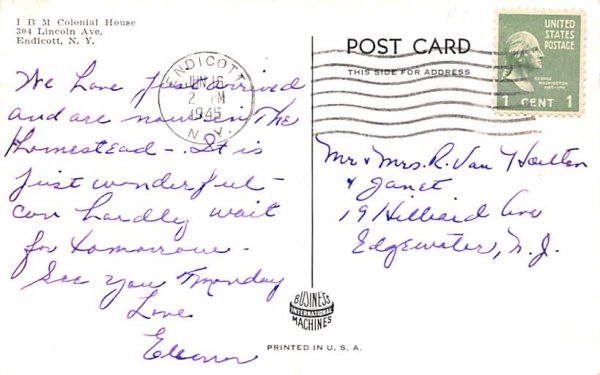 I B M Colonial House
304 Lincoln Ave.
Endicott, N. Y.
We have just arrived
and are now in The
Homestead - It is
just wonderful -
can hardly wait
for tomorrow -
See you Monday
Love
Eleanor
ENDICOTT
JUN 16
2 PM
1945
N.Y.
POST CARD
THIS SIDE FOR ADDRESS
UNITED
STATES
POSTAGE
GEORGE
WASHINGTON
1 CENT 1
Mr & Mrs. R. Van Houten
& Janet
19 Hilliard Ave
Edgewater, N.J.
BUSINESS
INTERNATIONAL
MACHINES
PRINTED IN U. S. A.